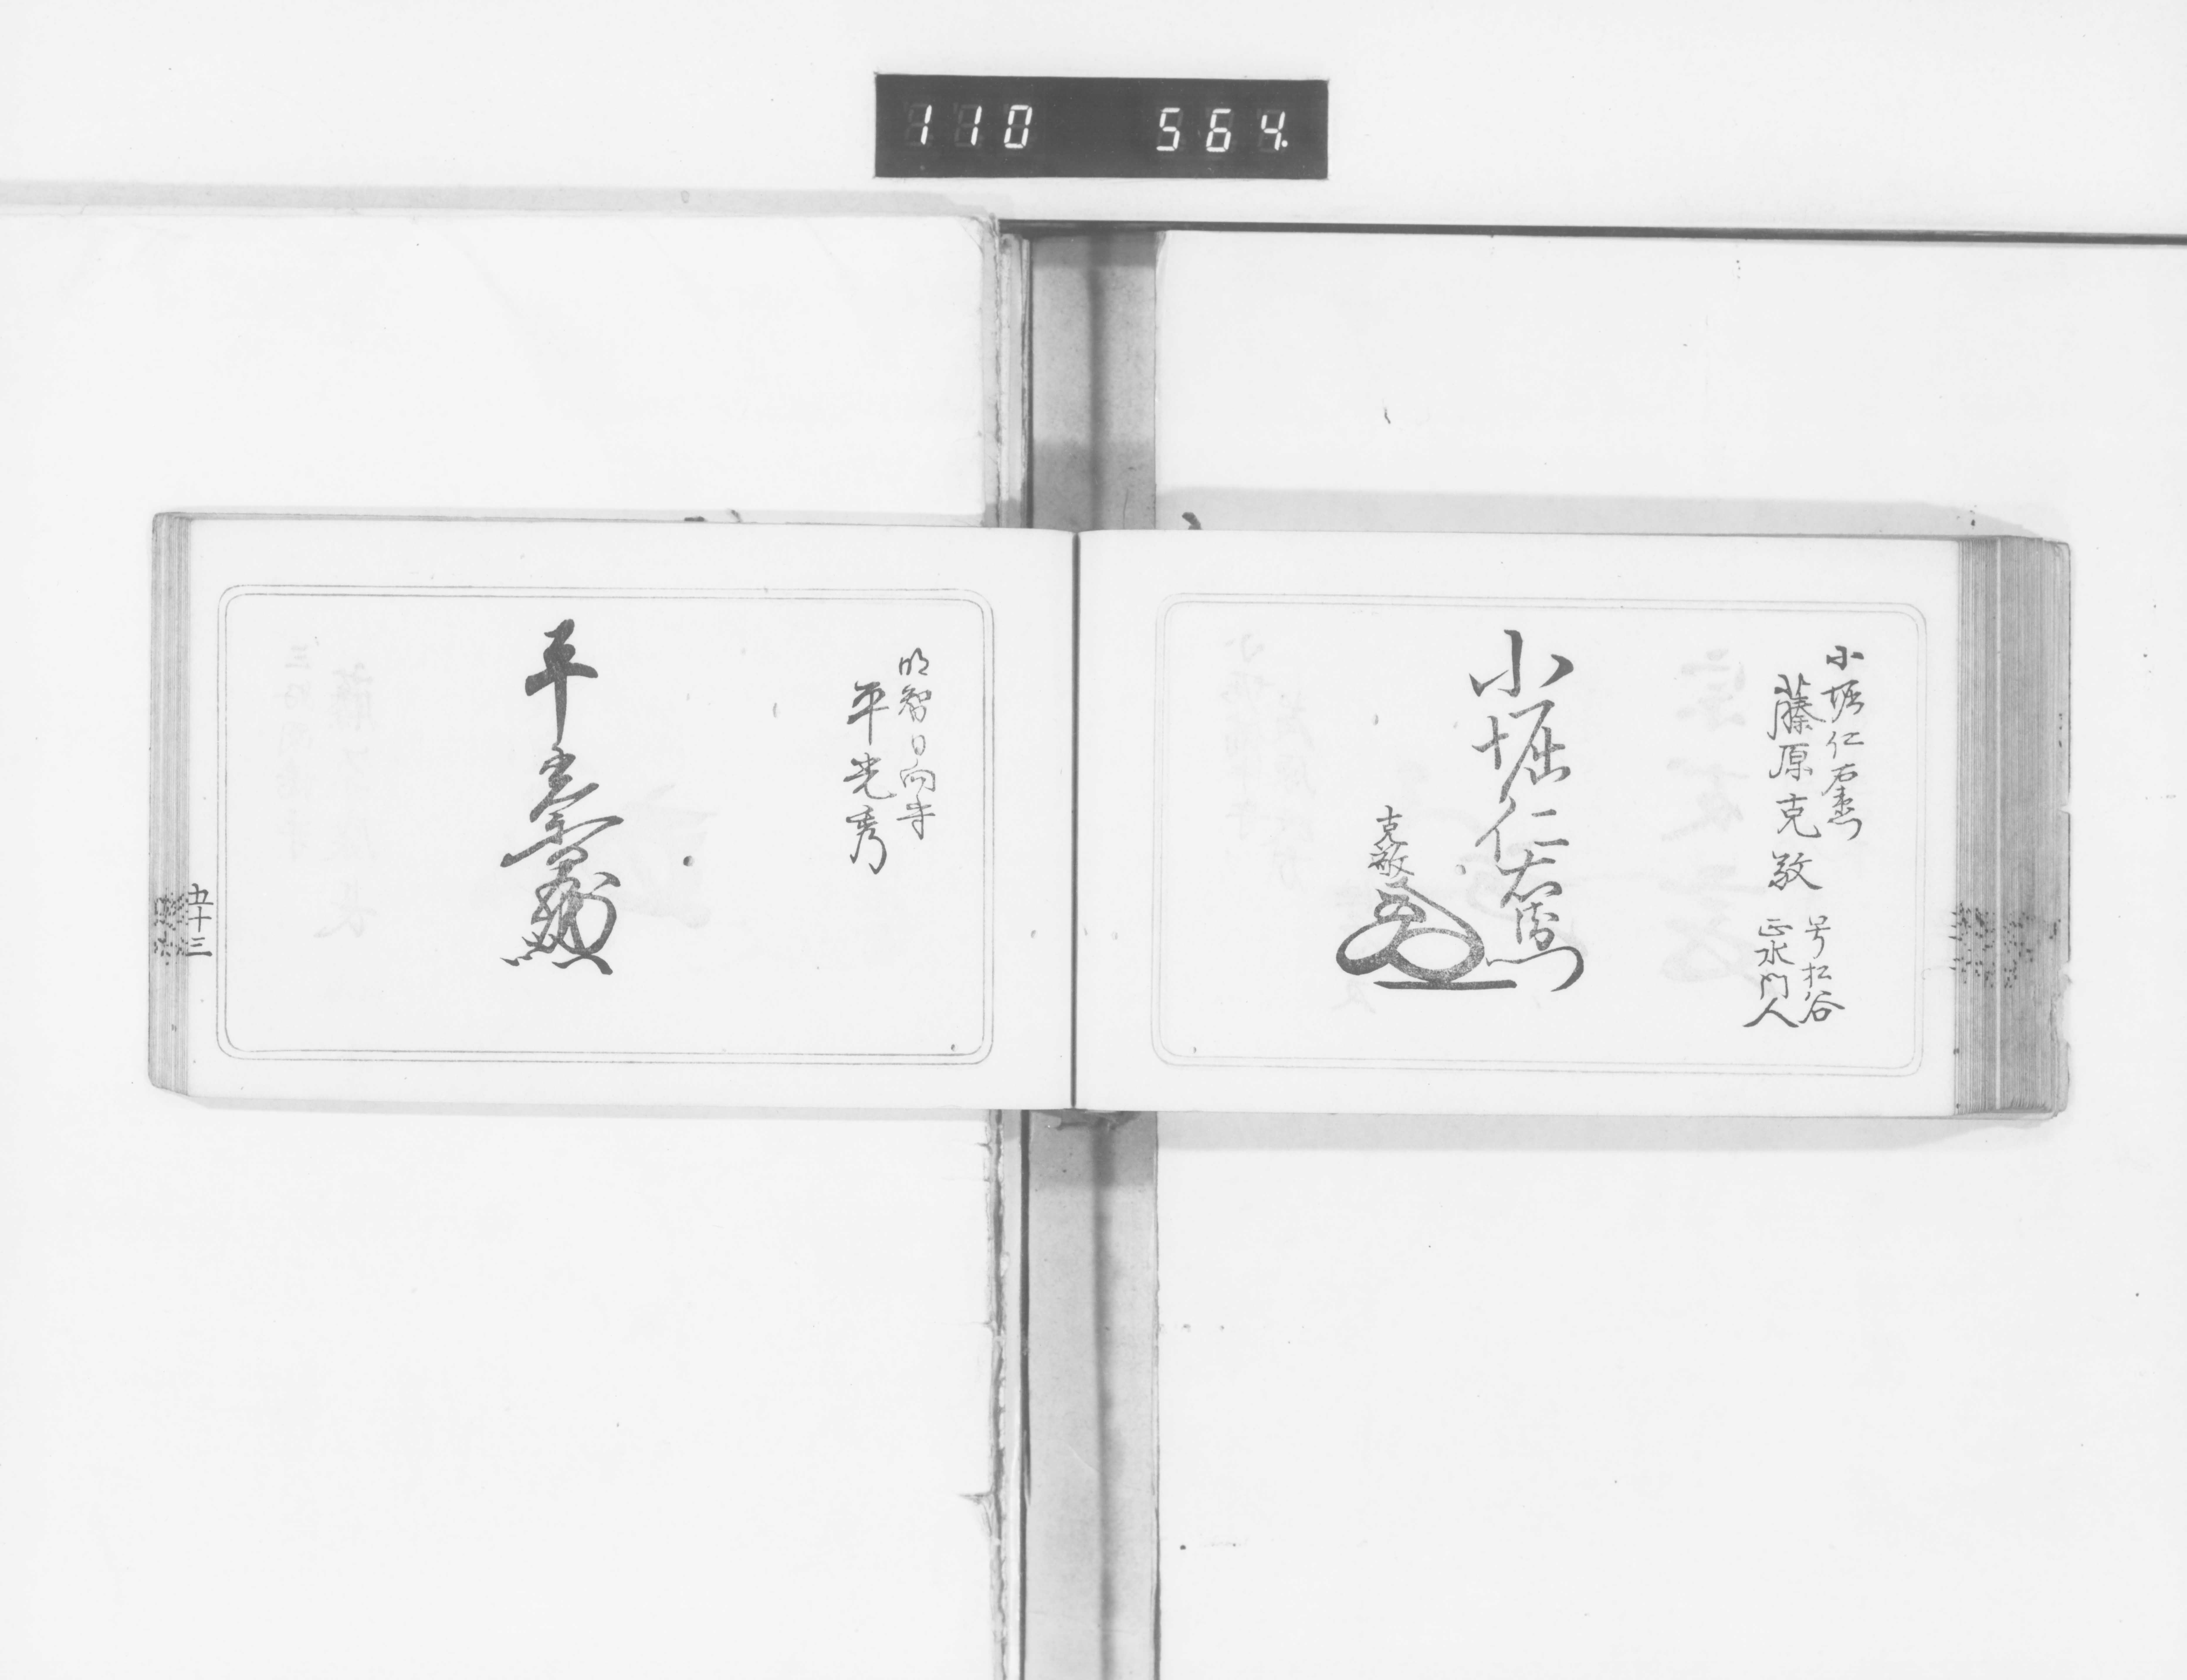 110 564.
小堀仁右衛門
藤原克敬
号松谷
正水門人
小堀仁右衛門
克敬
明智日向守
平光秀
平
五十三